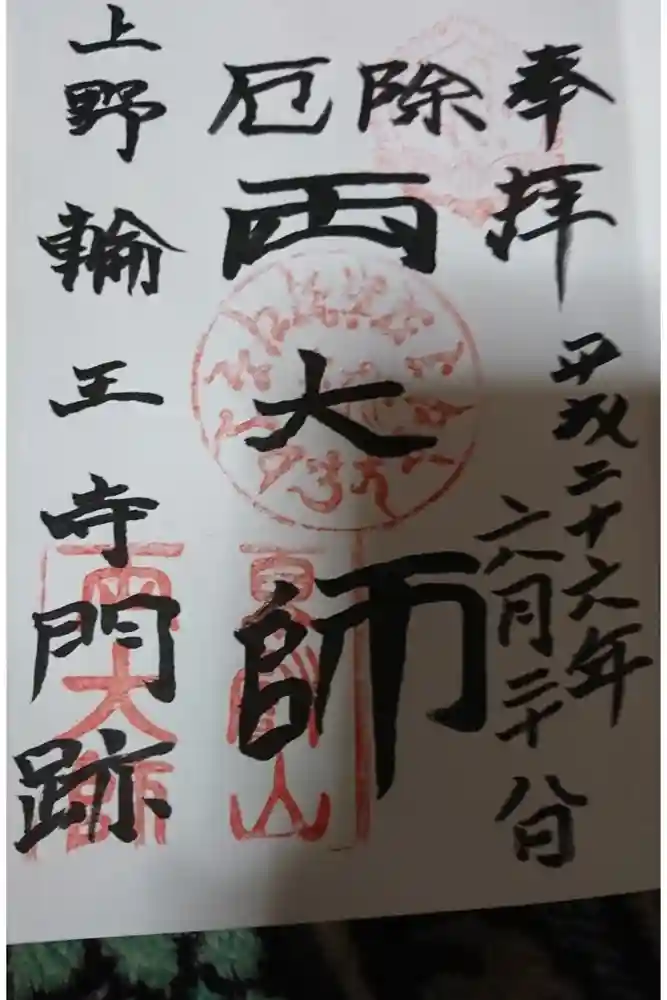 奉拝
平成二十六年
六月二十八日
厄除
両大師
上野輪王寺門跡
東叡山
両大師